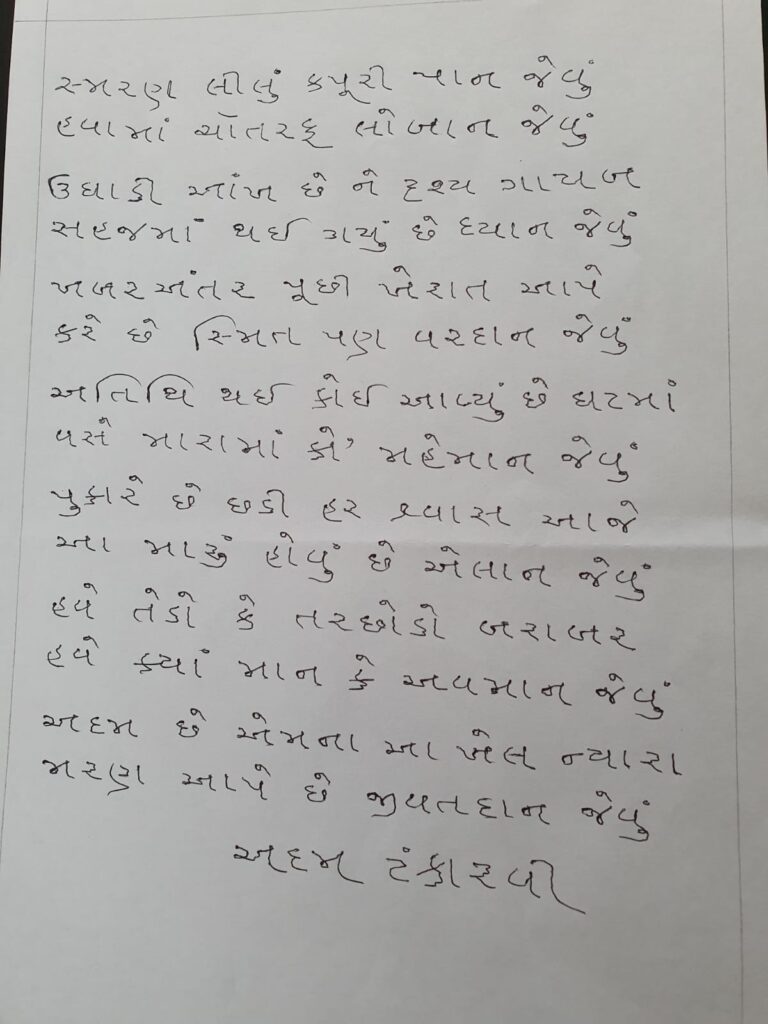 સ્મરણ લીલું કપૂરી પાન જેવું
હવામાં ચોતરફ લોબાન જેવું
ઉઘાડી આંખ છે ને દૃશ્ય ગાયબ
સહજમાં થઈ ગયું છે ધ્યાન જેવું
ખબરઅંતર પૂછી ખેરાત આપે
કરે છે સ્મિત પણ વરદાન જેવું
અતિથિ થઈ કોઈ આવ્યું છે ઘટમાં
વસે મારામાં કો' મહેમાન જેવું
પુકારે છે છડી હર શ્વાસ આજે
આ મારું હોવું છે એલાન જેવું
હવે તેડો કે તરછોડો બરાબર
હવે ક્યાં માન કે અવમાન જેવું
અદમ છે એમના આ ખેલ ન્યારા
મરણ આપે છે જીવતદાન જેવું
અદમ ટંકારવી